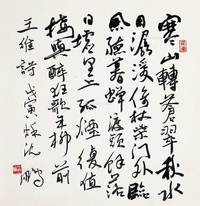 寒山轉蒼翠秋水
日潺湲倚杖柴門外臨
風聽暮蟬渡頭餘落
日墟里上孤煙復值
接輿醉狂歌五柳前
王維詩 戊寅秋沈鵬